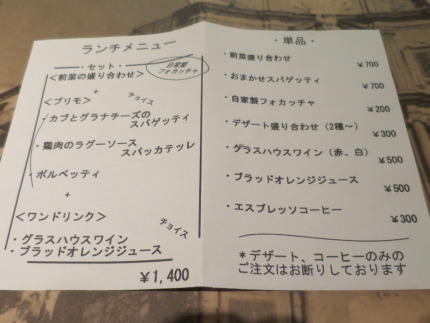 ランチメニュー
・セット・
<前菜の盛り合わせ>
自家製
フォカッチャ
+
<プリモ>
チョイス
・カブとグラナチーズの
スパゲッティ
・鶏肉のラグーソース
スパッカテッレ
・ポルペッティ
+
<ワンドリンク>
チョイス
・グラスハウスワイン
・ブラッドオレンジジュース
¥1,400
・単品・
・前菜盛り合わせ
¥700
・おまかせスパゲッティ
¥700
・自家製フォカッチャ
¥200
・デザート盛り合わせ(2種~)
¥300
・グラスハウスワイン(赤、白)
¥500
・ブラッドオレンジジュース
¥500
・エスプレッソコーヒー
¥300
*デザート、コーヒーのみの
ご注文はお断りしております